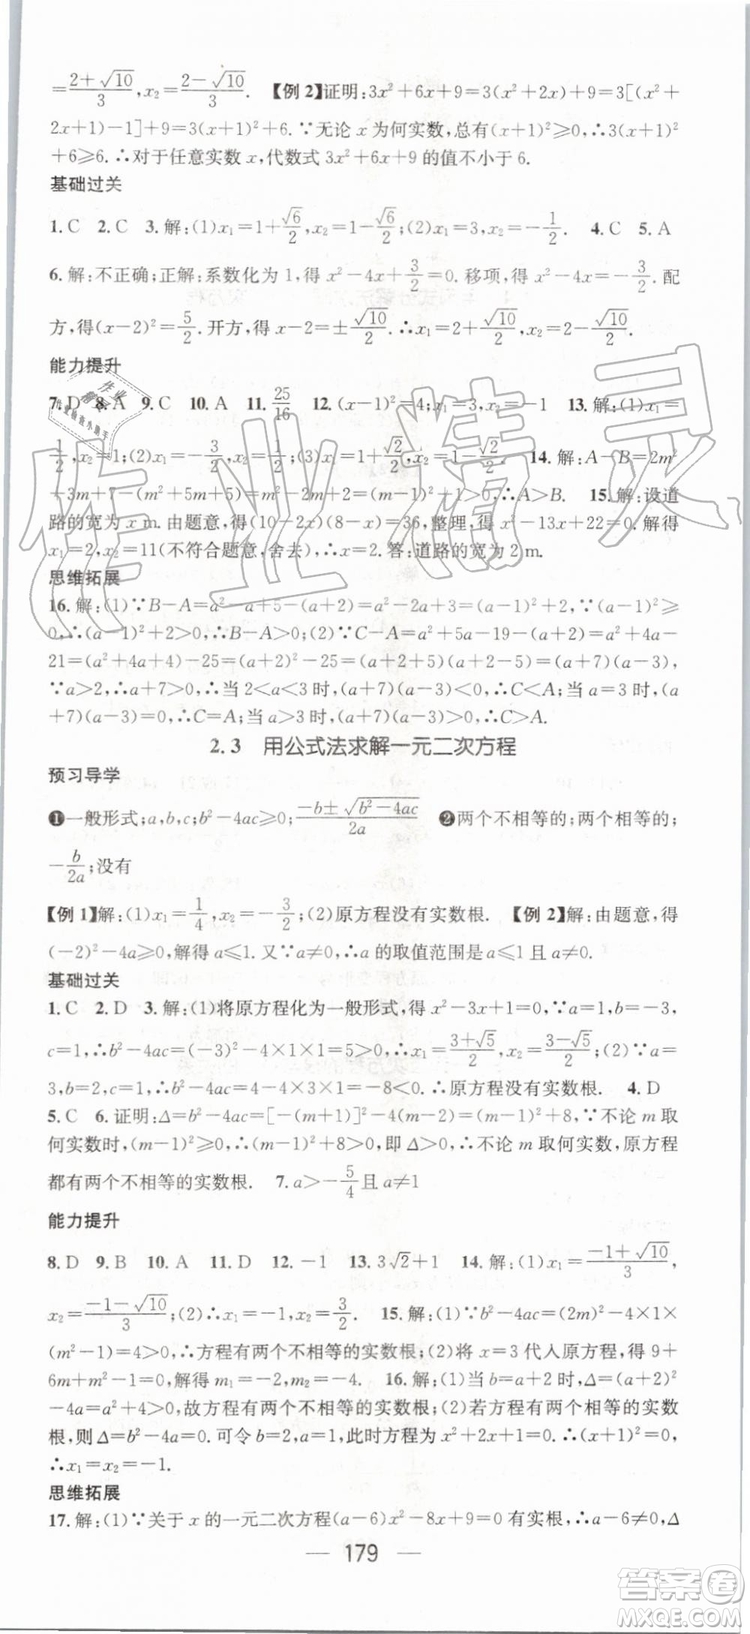 =\frac{2+\sqrt{10}}{3},x₂=\frac{2-\sqrt{10}}{3}. 【例2】证明:3x²+6x+9=3(x²+2x)+9=3[(x²+
2x+1)-1]+9=3(x+1)²+6.∵无论x为何实数,总有(x+1)²≥0,∴3(x+1)²
+6≥6.∴对于任意实数x,代数式3x²+6x+9的值不小于6.
基础过关
1.C 2.C 3.解:(1)x₁=1+\frac{\sqrt{6}}{2},x₂=1-\frac{\sqrt{6}}{2};(2)x₁=3,x₂=-\frac{1}{2}. 4.C 5.A
6.解:不正确;正解:系数化为1,得x²-4x+\frac{3}{2}=0.移项,得x²-4x=-\frac{3}{2}.配
方,得(x-2)²=\frac{5}{2}.开方,得x-2=±\frac{\sqrt{10}}{2}.∴x₁=2+\frac{\sqrt{10}}{2},x₂=2-\frac{\sqrt{10}}{2}.
能力提升
7.D 8.A 9.C 10.A 11.\frac{25}{16} 12.(x-1)²=4;x₁=3,x₂=-1 13.解:(1)x₁=
\frac{1}{2},x₂=1;(2)x₁=1+\frac{\sqrt{2}}{2},x₂=1-\frac{\sqrt{2}}{2}. 14.解:A-B=2m²
+7m-5-(m²+5m-7)=m²+2m+2=(m+1)²+1>0,∴A>B. 15.解:设道
路的宽为x m.由题意,得(10-2x)(8-x)=36,整理,得x²-13x+22=0.解得
x₁=2,x₂=11(不符合题意,舍去).∴x=2.答:道路的宽为2 m.
思维拓展
16.解:(1)∵B-A=a²-a+5-(a+2)=a²-2a+3=(a-1)²+2,(a-1)²≥
0,∴(a-1)²+2>0,∴B-A>0;(2)∵C-A=a²+5a-19-(a+2)=a²+4a-
21=(a²+4a+4)-25=(a+2)²-25=(a+2+5)(a+2-5)=(a+7)(a-3),
∵a>2,∴a+7>0,∴当2<a<3时,(a+7)(a-3)<0,∴C<A;当a=3时,(a
+7)(a-3)=0,∴C=A;当a>3时,(a+7)(a-3)>0,∴C>A.
2.3 用公式法求解一元二次方程
预习导学
❶一般形式;a,b,c;b²-4ac≥0;\frac{-b±\sqrt{b²-4ac}}{2a} ❷两个不相等的;两个相等的;
-\frac{b}{2a};没有
【例1】解:(1)x₁=\frac{1}{4},x₂=-\frac{3}{2};(2)原方程没有实数根. 【例2】解:由题意,得
(-2)²-4a≥0,解得a≤1.又∵a≠0,∴a的取值范围是a≤1且a≠0.
基础过关
1.C 2.D 3.解:(1)将原方程化为一般形式,得x²-3x+1=0,∵a=1,b=-3,
c=1,∴b²-4ac=(-3)²-4×1×1=5>0,∴x₁=\frac{3+\sqrt{5}}{2},x₂=\frac{3-\sqrt{5}}{2};(2)∵a=1,b=2,c=
3,∴b²-4ac=2²-4×1×3=-8<0,∴原方程没有实数根. 4.D
5.C 6.证明:Δ=b²-4ac=[-(m+1)]²-4(-2m+2)... 不论m取
何实数时,(m-1)²≥0,∴(m-1)²+8>0,即Δ>0,∴不论m取何实数,原方程
都有两个不相等的实数根. 7.a>-\frac{5}{4}且a≠1
能力提升
8.D 9.B 10.A 11.D 12.-1 13.3\sqrt{2}+1 14.解:(1)x₁=\frac{-1+\sqrt{10}}{3},
x₂=\frac{-1-\sqrt{10}}{3};(2)∴x₁=-1,x₂=\frac{3}{2}. 15.解:(1)∵b²-4ac=(2m)²-4×1×
(m²-1)=4>0,∴方程有两个不相等的实数根;(2)将x=3代入原方程,得9+
6m+m²-1=0,解得m₁=-2,m₂=-4. 16.解:(1)b=a+2时,Δ=(a+2)²
-4a=a²+4>0,故方程有两个不相等的实数根;(2)若方程有两个相等的实数
根,则Δ=b²-4a=0.可令b=2,a=1,此时方程为x²+2x+1=0,解得
∴x₁=x₂=-1.
思维拓展
17.解:(1)∵关于x的一元二次方程(a-6)x²-8x+9=0有实根,∴a-6≠0,Δ
179
作业精灵
答案圈
MXQE.COM